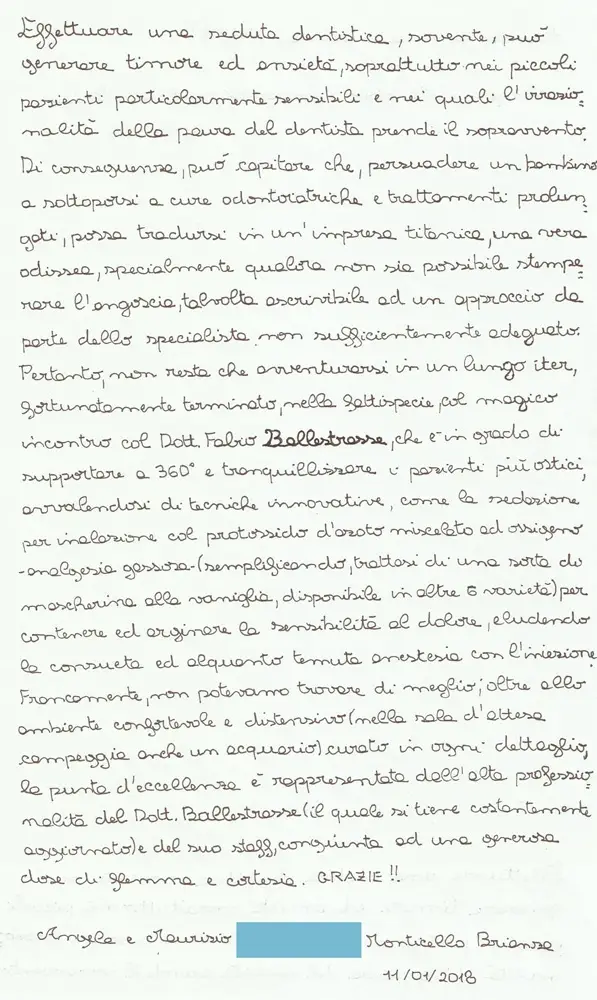 Effettuare una seduta dentistica, sovente, può
generare timore ed ansietà, soprattutto nei piccoli
pazienti particolarmente sensibili e nei quali l'irrazio=
nalità della paura del dentista prende il sopravvento.
Di conseguenza, può capitare che, persuadere un bambino
a sottoporsi a cure odontoiatriche e trattamenti prolun=
gati, possa tradursi in un'impresa titanica, una vera
odissea, specialmente qualora non sia possibile stempe=
rare l'angoscia, talvolta ascrivibile ad un approccio da
parte dello specialista non sufficientemente adeguato.
Pertanto, non resta che avventurarsi in un lungo iter,
fortunatamente terminato, nella fattispecie, col magico
incontro col Dott. Fabio Ballestrasse, che è in grado di
supportare a 360° e tranquillizzare i pazienti più ostici,
avvalendosi di tecniche innovative, come la sedazione
per inalazione col protossido d'azoto miscelato ad ossigeno
-analgesia gassosa-(semplificando, trattasi di una sorta di
mascherina alla vaniglia, disponibile in altre 6 varietà) per
contenere ed arginare la sensibilità al dolore, eludendo
la consueta ed alquanto temuta anestesia con l'iniezione.
Francamente, non potevamo trovare di meglio; oltre allo
ambiente confortevole e distensivo (nella sala d'attesa
campeggia anche un acquario) curato in ogni dettaglio,
la punta d'eccellenza è rappresentata dall'alta professio=
nalità del Dott. Ballestrasse (il quale si tiene costantemente
aggiornato) e del suo staff, congiunta ad una generosa
dose di flemma e cortesia. GRAZIE!!
Angela e Maurizio Monticello Brianza
11/01/2018